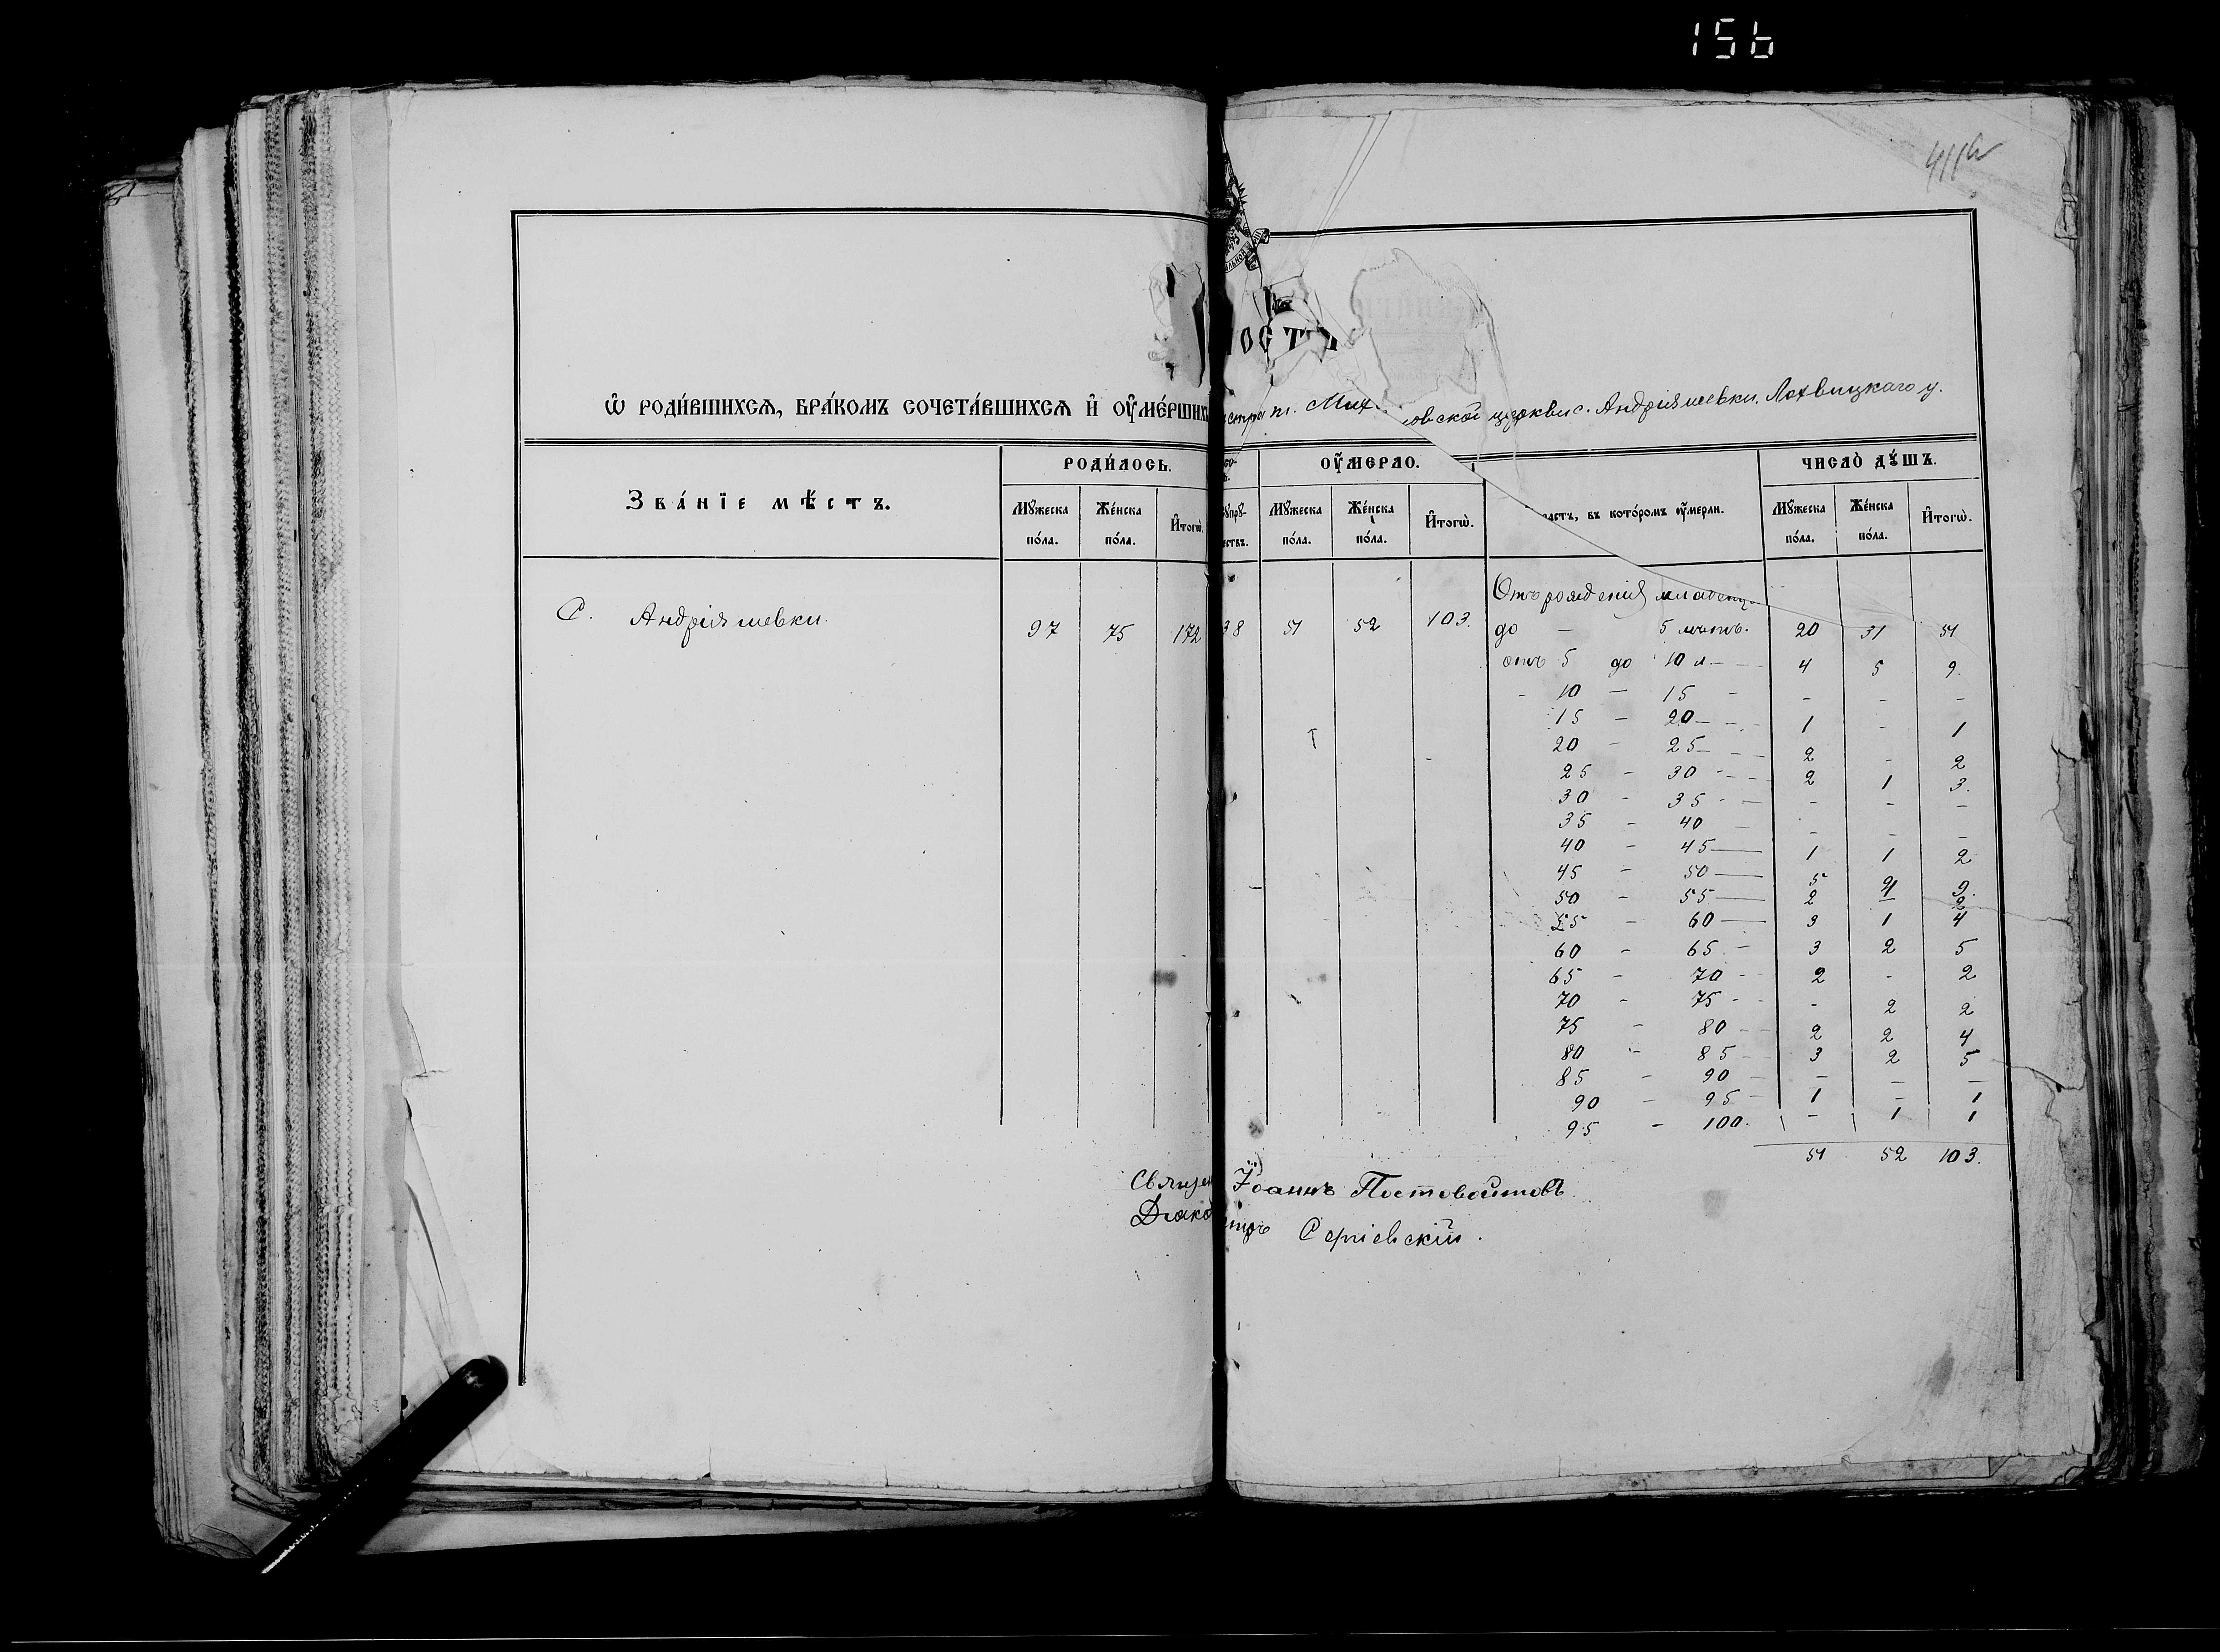 156
411
ОСТ
Ѡ҆ РОДИ́ВШИХСѦ, БРА́КОМЪ СОЧЕТА́ВШИХСѦ И҆ ОУ҆МЕ́РШИХЪ
церкви с. Андріяшевки. Лохвицкаго у.
Зва́нїе мѣ́стъ.
РОДИ́ЛОСЬ.
ОУ҆́МЕРЛО.
ЧИСЛО̀ ДꙊ́ШЪ.
Мꙋ́жеска по́ла.
Же́нска по́ла.
И҆тогѡ̀.
Мꙋ́жеска по́ла.
Же́нска по́ла.
И҆тогѡ̀.
въ кото́ромъ оу҆́мерли.
Мꙋ́жеска по́ла.
Же́нска по́ла.
И҆тогѡ̀.
С. Андріяшевки. 97 75 172 38 51 52 103.
Отъ рожденія
до — 5 лѣтъ. 20 31 51
отъ 5 до 10 л. — 4 5 9.
- 10 — 15 - - - -
15 — 20 — 1 - 1
20 - 25 — 2 - 2
25 - 30 - 2 1 3.
30 - 35 - - - -
35 - 40 — - - -
40 - 45 — 1 1 2
45 - 50 — 5 4 9.
50 - 55 — 2 — 2
55 - 60 — 3 1 4
60 - 65 - 3 2 5
65 - 70 - 2 - 2
70 - 75 - - 2 2
75 - 80 - 2 2 4
80 - 85 - 3 2 5
85 - 90 — — — —
90 - 95 - 1 - 1
95 - 100. - 1 1
51 52 103.
Іоаннъ Постовойтовъ.
Сергіевскій.